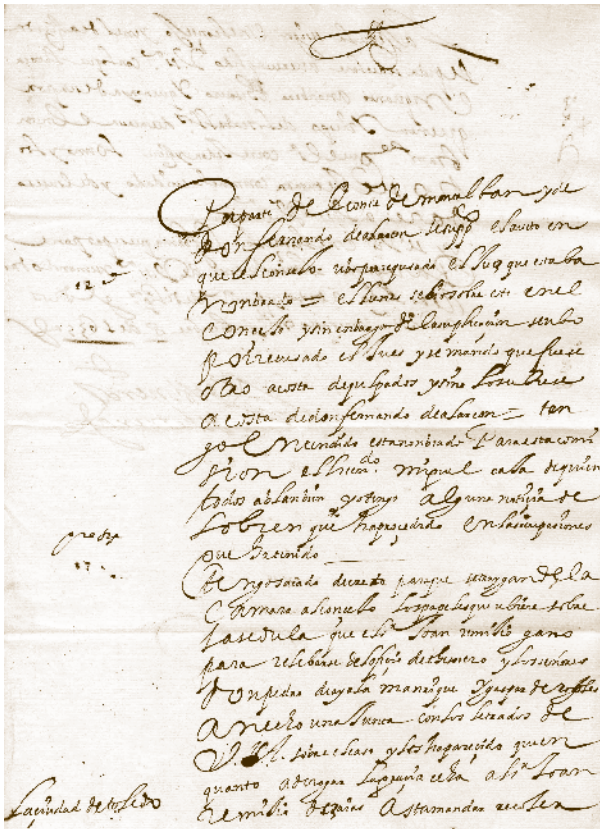 Por parte de el conde de montalban y de
don fernando de alarcon se supp.co el auto en
que el consejo ubo por recusado el Juez que estaba
nonbrado = el lunes se bio sobre esto en el
consejo y sin enbargo de la suplicacion se ubo
por recusado el Juez y se mando que fuese
otro a costa de culpados y si no los ubiese
a costa de don fernando de alarcon = ten
go entendido esta nonbrado Para esta comi
sion el licen.do miguel cala de
todos ablan bien y o tengo alguna noticia de
lo bien que ha procedido en las ocupaciones
que ha tenido
tengo sacado decreto para que se traygan de la
Camara al consejo los papeles que ubiere sobre
la cedula que el s.r Joan remilio gano
para relebarse del oficio de y los señores
don pedro de ayala manrique y gaspar de robles
an echo una Junta con los letrados de
V. S.a sobre el caso y les ha parecido que en
quanto a al s.r Joan
Remilio asta mandar
12
17
La ciudad de toledo